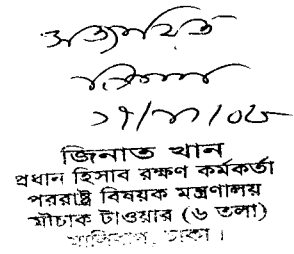 সত্যায়িত
জিনাত খান
প্রধান হিসাব রক্ষণ কর্মকর্তা
পররাষ্ট্র বিষয়ক মন্ত্রণালয়
মৌচাক টাওয়ার (৬ তলা)
মালিবাগ, ঢাকা।